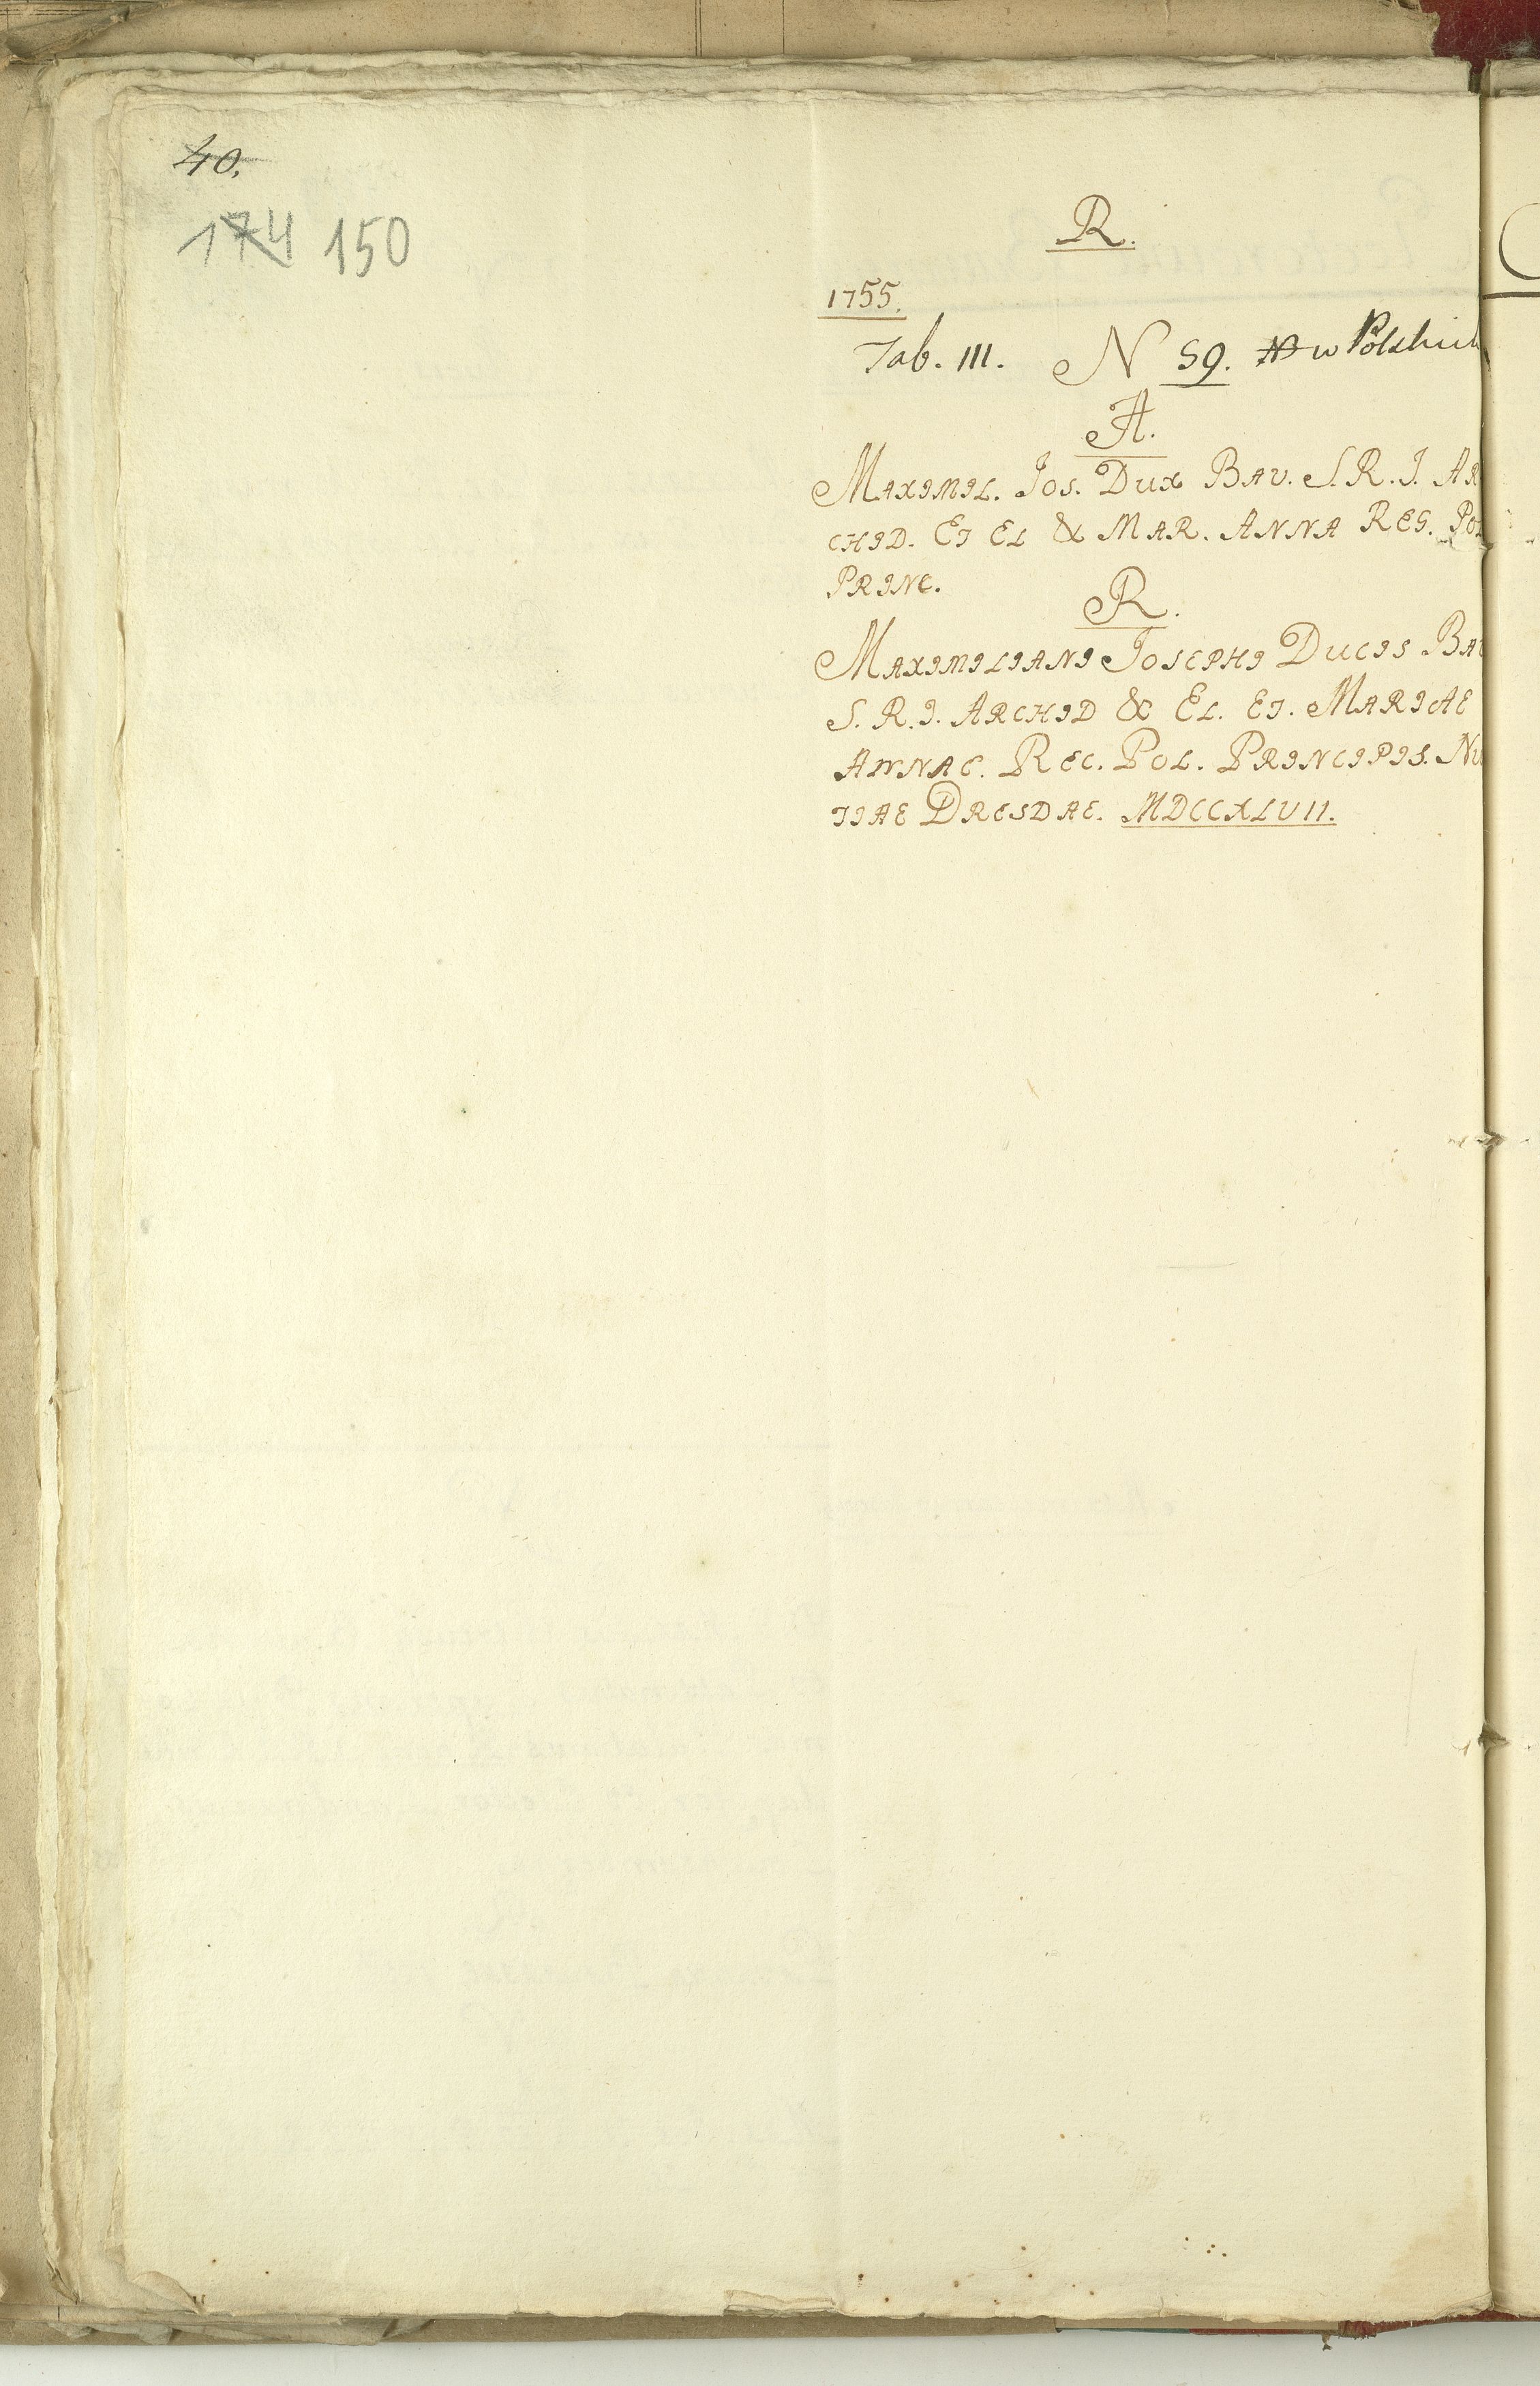 40.
174 150
R.
1755.
Tab. III. N 59. w Polskich
A.
MAXIMIL. IOS. DUX BAV. S. R. I. AR
CHID. ET EL & MAR. ANNA REG. POL
PRINC.
R.
MAXIMILIANI IOSEPHI DUCIS BAV
S. R. I. ARCHID & EL. ET. MARIAE
ANNAE. REG. POL. PRINCIPIS. NU
TIAE DRESDAE. MDCCXLVII.